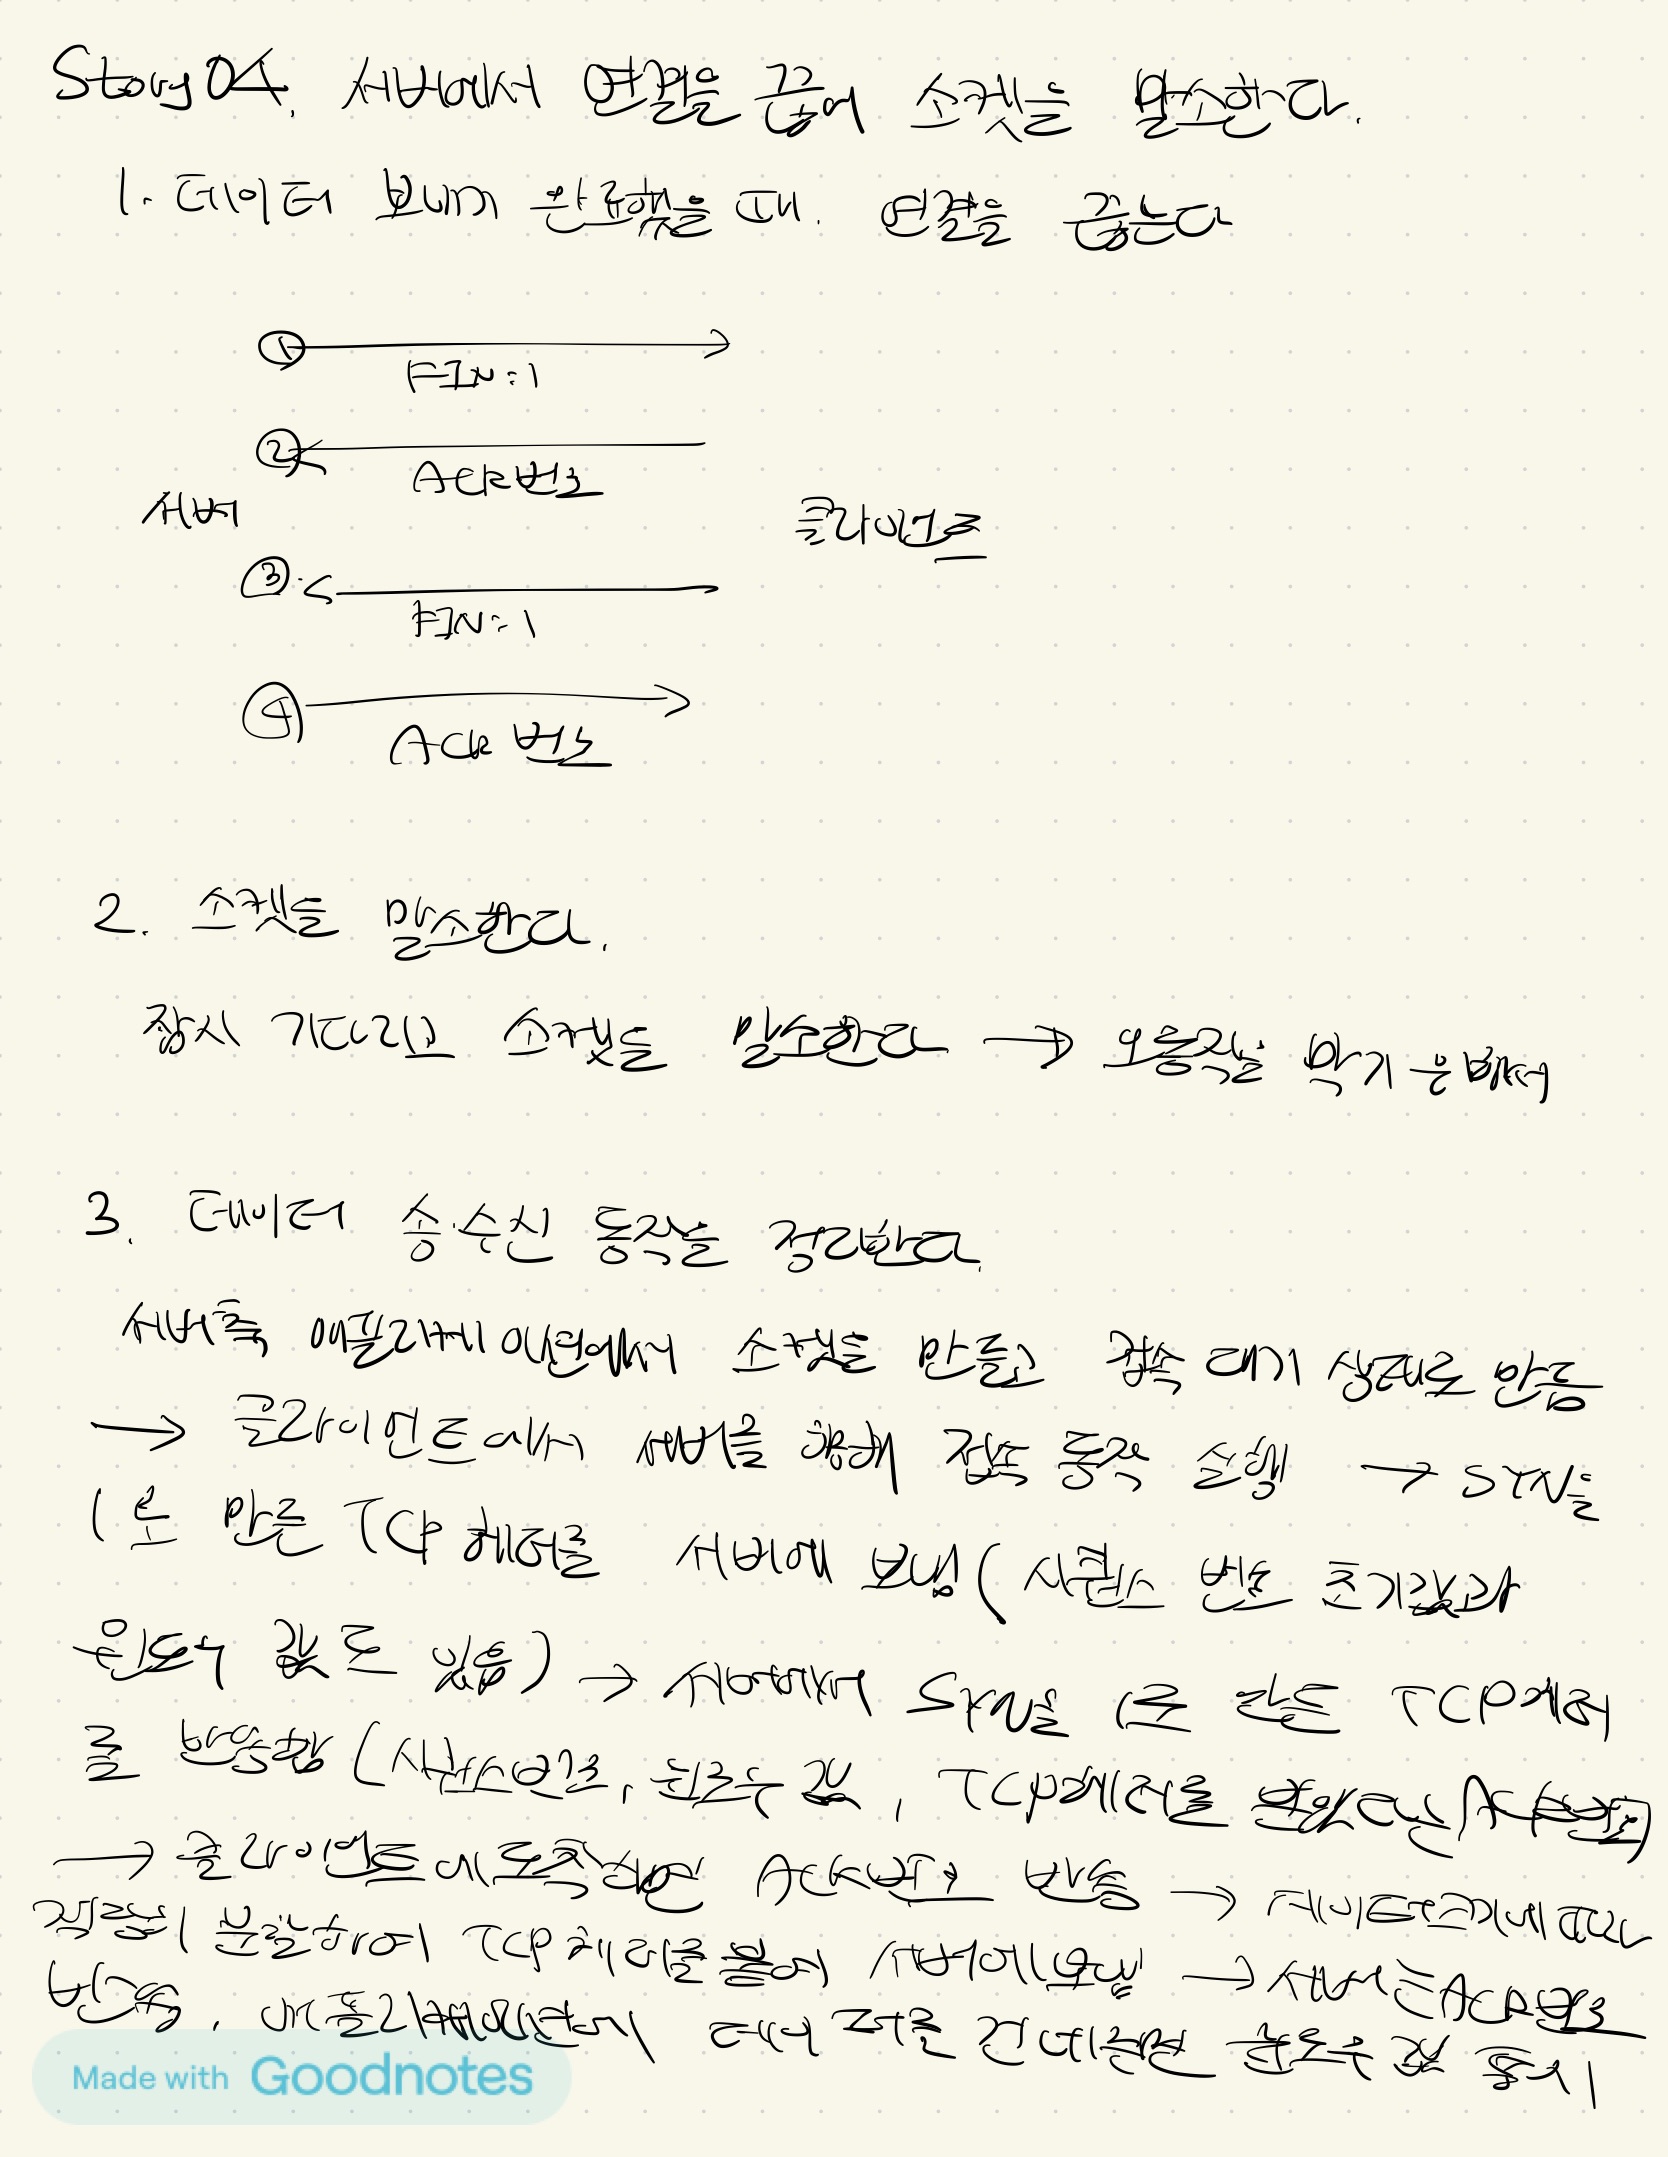 Story 04. 서버에서 연결을 끊어 소켓을 말소한다.
1. 데이터 보내기 완료했을 때. 연결을 끊는다
① FIN:1
② ACK번호
서버
클라이언트
③ FIN:1
④ ACK 번호
2. 소켓을 말소한다.
잠시 기다리고 소켓을 말소한다 → 오동작을 막기 위해서
3. 데이터 송·수신 동작을 정리한다.
서버측 애플리케이션에서 소켓을 만들고 접속 대기 상태로 만듬
→ 클라이언트에서 서버를 향해 접속 동작 실행 → SYN을
1로 만든 TCP 헤더를 서버에 보냄 (시퀀스 번호 초기값과
윈도우 값도 있음) → 서버에서 SYN을 1로 만든 TCP헤더
를 반송함 (시퀀스번호, 윈도우 값, TCP헤더를 받았다는 ACK번호)
→ 클라이언트에 도착하면 ACK번호 반송 → 데이터크기에 따라
적절히 분할하여 TCP헤더를 붙여 서버에 보냄 → 서버는 ACK번호
반송, 애플리케이션에 데이터를 건네주면 윈도우 값 통지
Made with Goodnotes